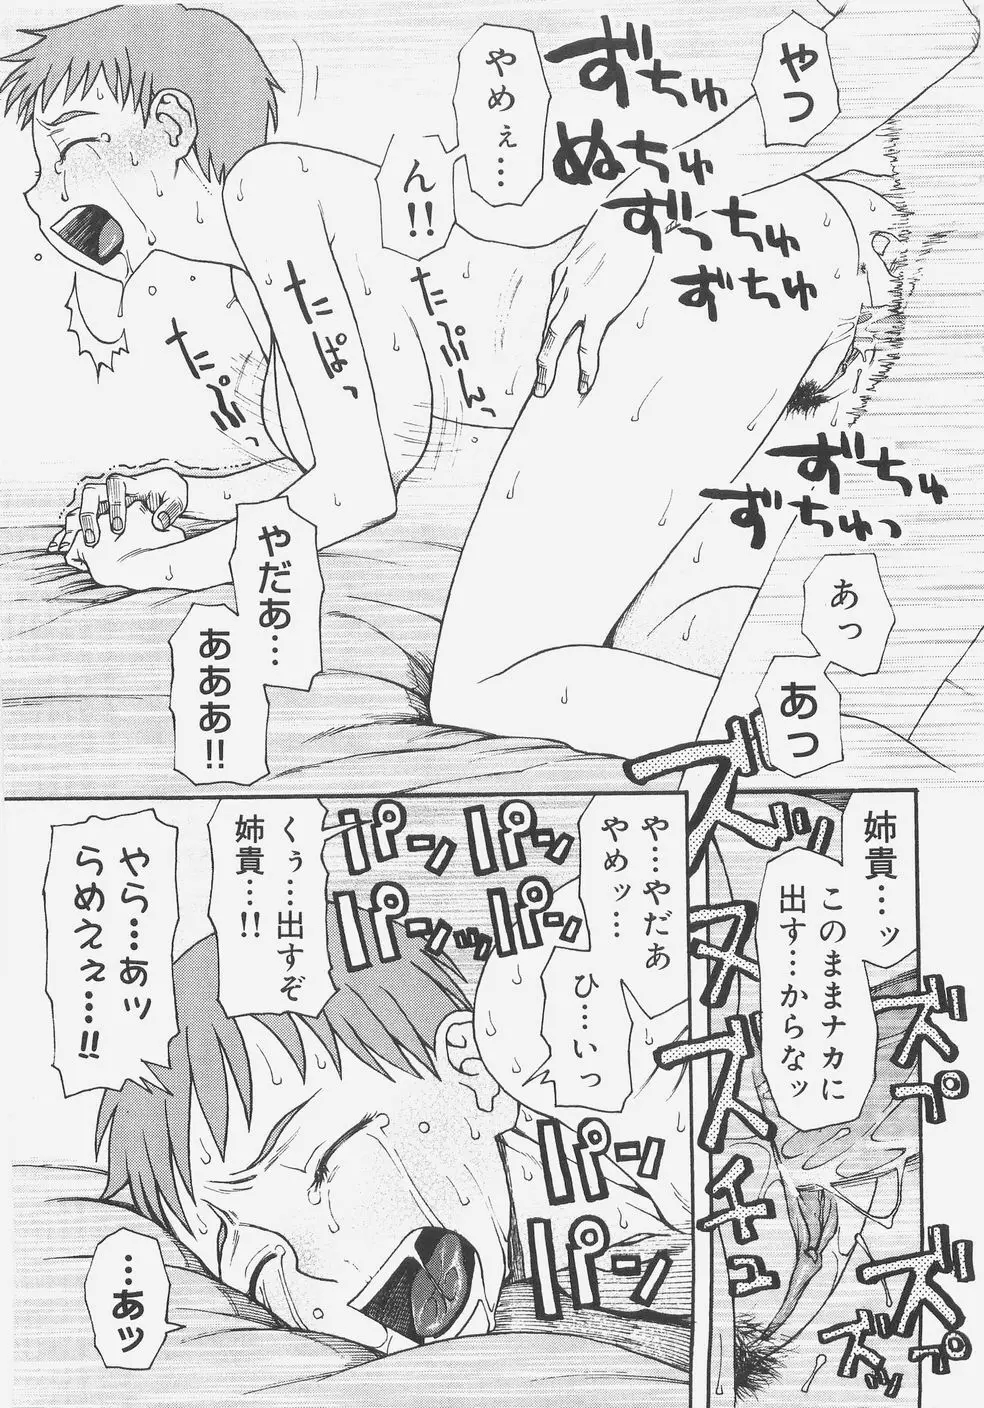 やっ
やめぇ…
ん!!
ずちゅ
ぬちゅ
ずっちゅ
ずちゅ
たぷんっ
たぱっ
たぷっ
ずちゅ
ずちゅっ
やだあ…
あああ!!
あっ
あっ
姉貴…ッ
このままナカに
出す…からなッ
ズッ
ヌ
ズズチュ
ズプ
ズプ
ズッ
や…やだあ
やめッ…
ひ…いっ
パンッ
パンッ
パンッ
パンッ
パンッ
パンッ
くぅ…出すぞ
姉貴…!!
やら…あッ
らめえぇ…!!
…あッ